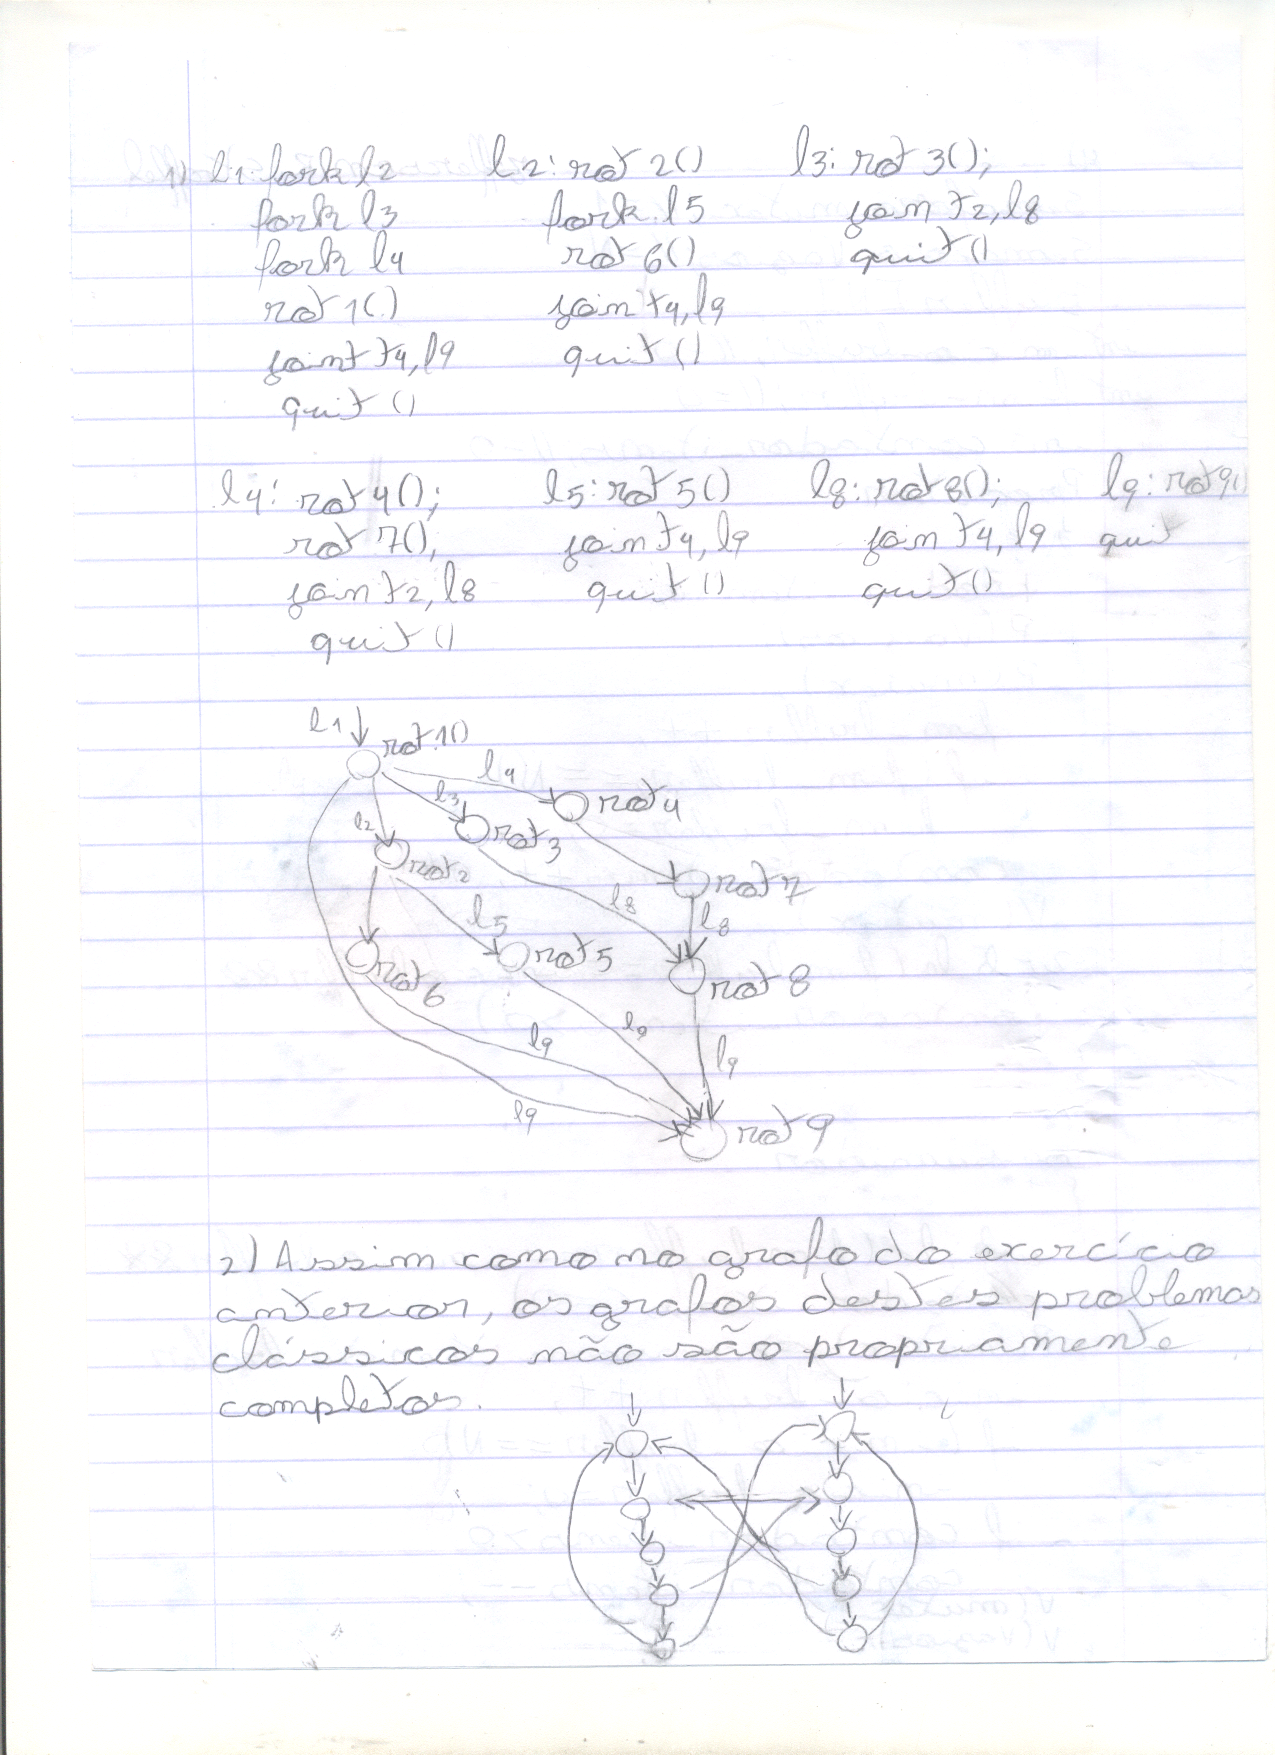 1) l1: fork l2
fork l3
fork l4
rot 1()
joint t4, l9
quit ()
l2: rot 2()
fork l5
rot 6()
join t4, l9
quit ()
l3: rot 3();
join t2, l8
quit ()
l4: rot 4();
rot 7();
join t2, l8
quit ()
l5: rot 5()
join t4, l9
quit ()
l8: rot 8();
join t4, l9
quit ()
l9: rot 9()
quit
l1
rot 1()
l4
rot 4
l3
rot 3
l2
rot 2
rot 7
l8
l8
l5
rot 5
rot 6
rot 8
l9
l9
l9
l9
rot 9
2) Assim como no grafo do exercício
anterior, os grafos destes problemas
clássicos não são propriamente
completos.